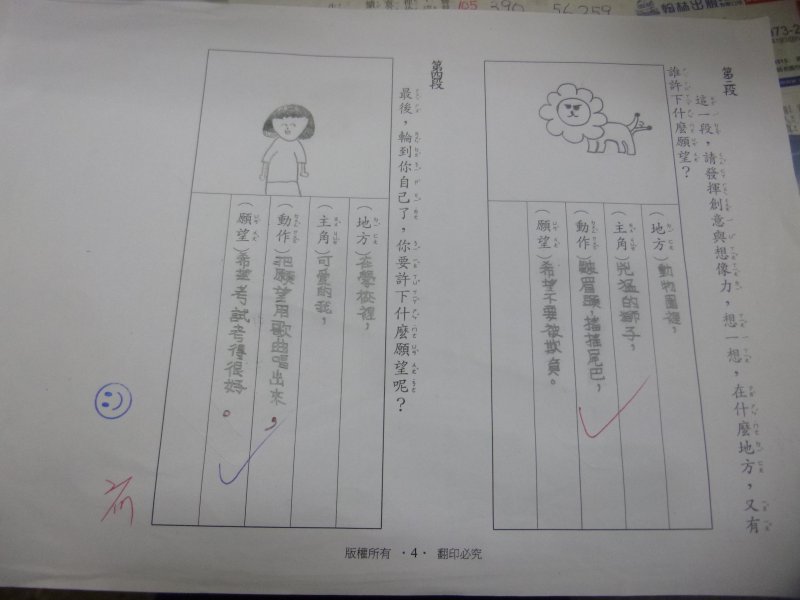 第三段
這一段，請發揮創意與想像力，想一想，在什麼地方，又有
誰許下什麼願望？
（地方）動物園裡，
（主角）兇猛的獅子，
（動作）皺眉頭，搖搖尾巴，
（願望）希望不要被欺負。
第四段
最後，輪到你自己了，你要許下什麼願望呢？
（地方）在學校裡，
（主角）可愛的我，
（動作）把願望用歌曲唱出來，
（願望）希望考試考得很好。
版權所有 ·4· 翻印必究
105 390 56259
翰林出版